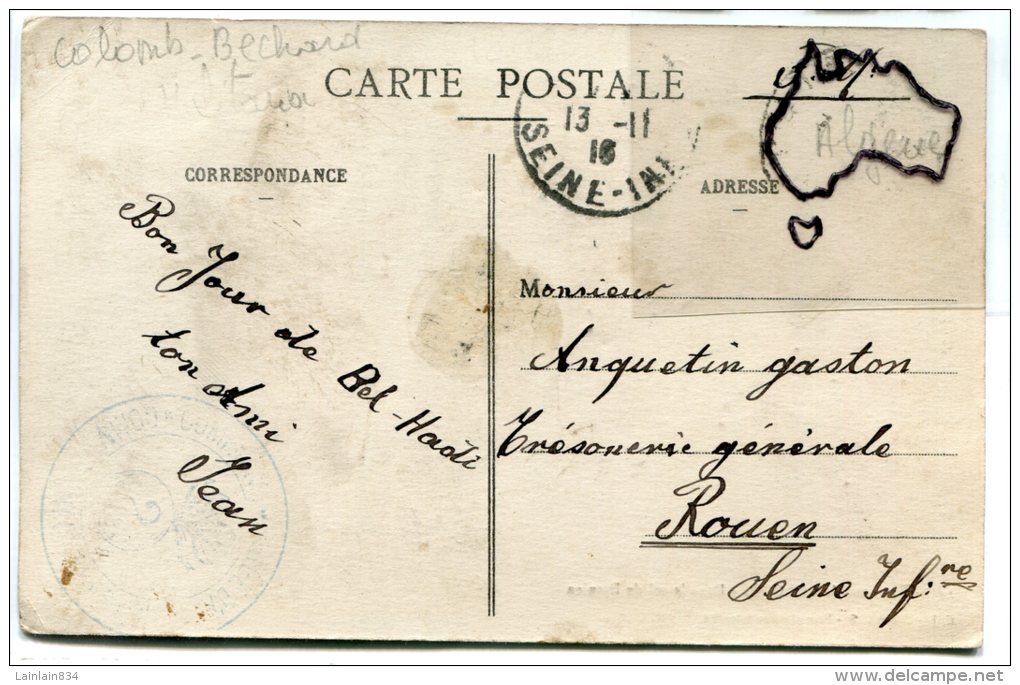 Colomb-Bechard
CARTE POSTALE
F. M.
13 -11
16
SEINE-INF
Algerie
CORRESPONDANCE
ADRESSE
Bon Jour de Bel-Hadi
ton Ami
Jean
Monsieur
Anquetin gaston
Trésorerie générale
Rouen
Seine Inf:re
Lainlain834
delcampe.net